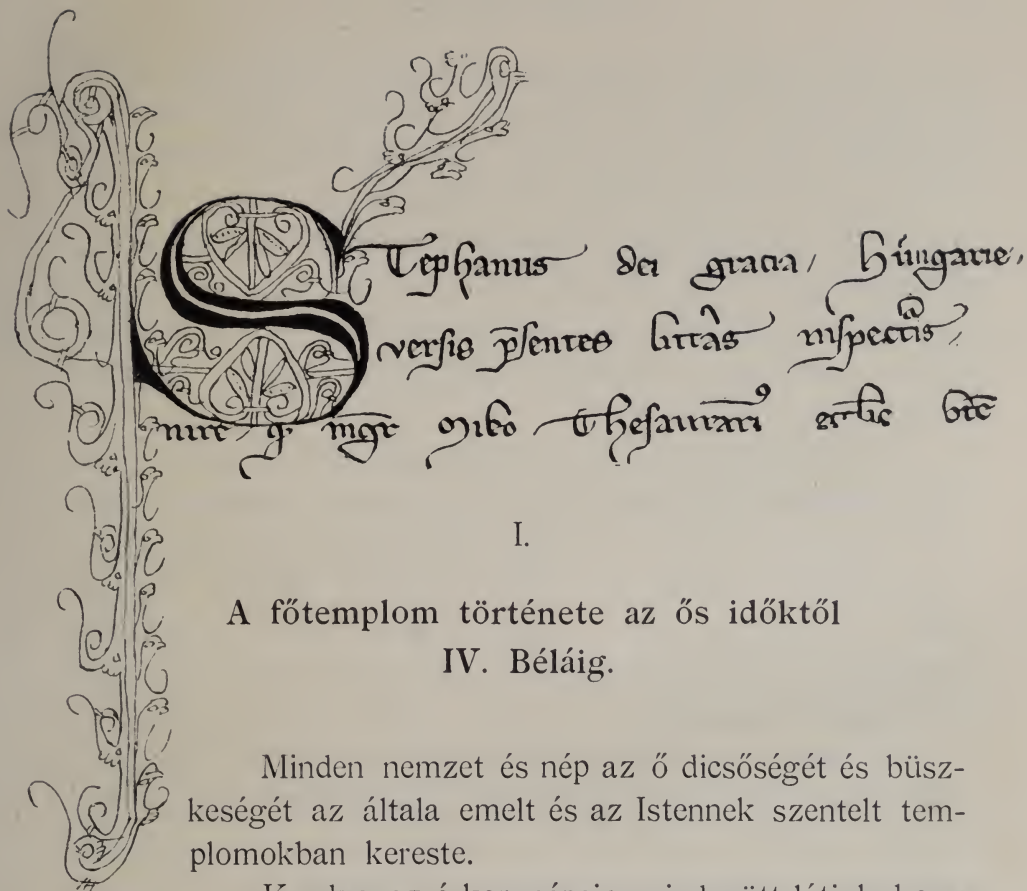 STephanus dei gracia Hungarie
versis p̄sentes litt̄as inspectis
mgr Thesaurari⁹
I.
A főtemplom története az ős időktől
IV. Béláig.
Minden nemzet és nép az ő dicsőségét és büsz-
keségét az általa emelt és az Istennek szentelt tem-
plomokban kereste.